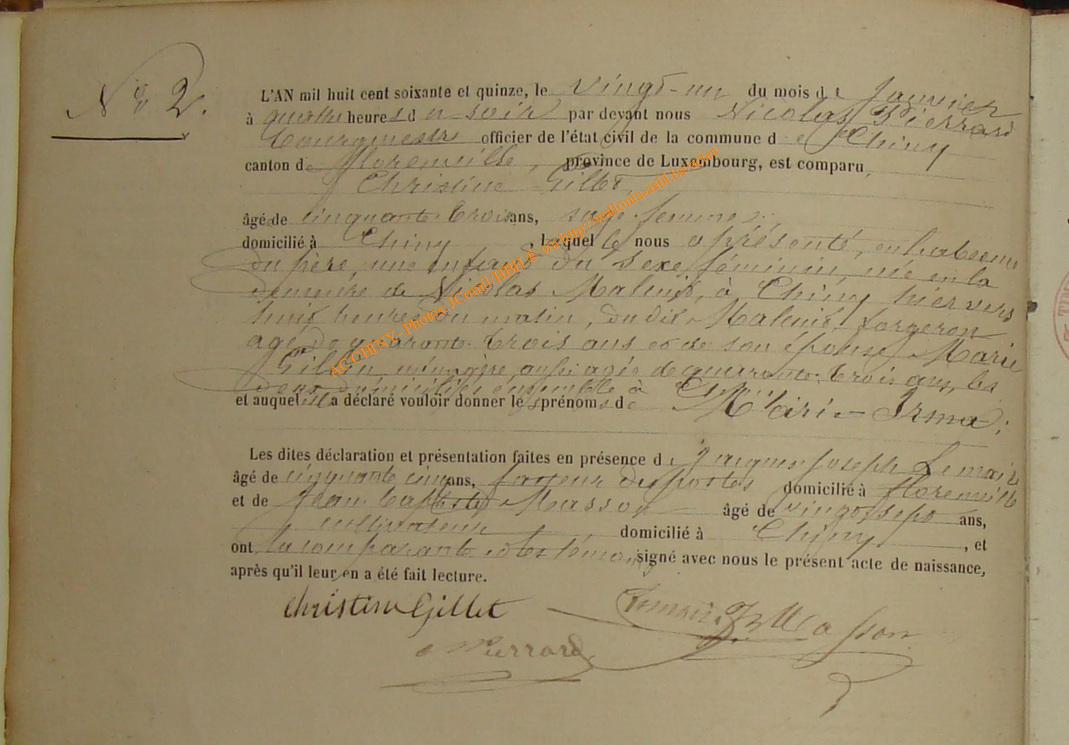 N° 2.
L'AN mil huit cent soixante et quinze, le vingt-un du mois de Janvier
à quatre heures du soir par devant nous Nicolas Pierrard
bourgmestre officier de l'état civil de la commune de Chiny
canton de Florenville, province de Luxembourg, est comparu,
Christine Gillet,
âgé de cinquante trois ans, sage-femme,
domicilié à Chiny, laquel le nous a présenté, en l'absence
du père, une enfant du sexe féminin, née en la
demeure de Nicolas à Chiny hier vers
huit heures du matin, du dit forgeron
agé de quarante trois ans et de son épouse Marie
ménagère, aussi agée de quarante trois ans, les
deux domiciliés ensemble à Chiny
et auquel il a déclaré vouloir donner les prénoms de Marie Irma;
Les dites déclaration et présentation faites en présence de Jacques Joseph Lemaire
âgé de cinquante cinq ans, facteur des postes domicilié à Florenville
et de Jean Baptiste Masson âgé de vingt sept ans,
cultivateur domicilié à Chiny, et
ont la comparante et les témoins signé avec nous le présent acte de naissance,
après qu'il leur en a été fait lecture.
Christine Gillet Lemaire JB Masson
Pierrard